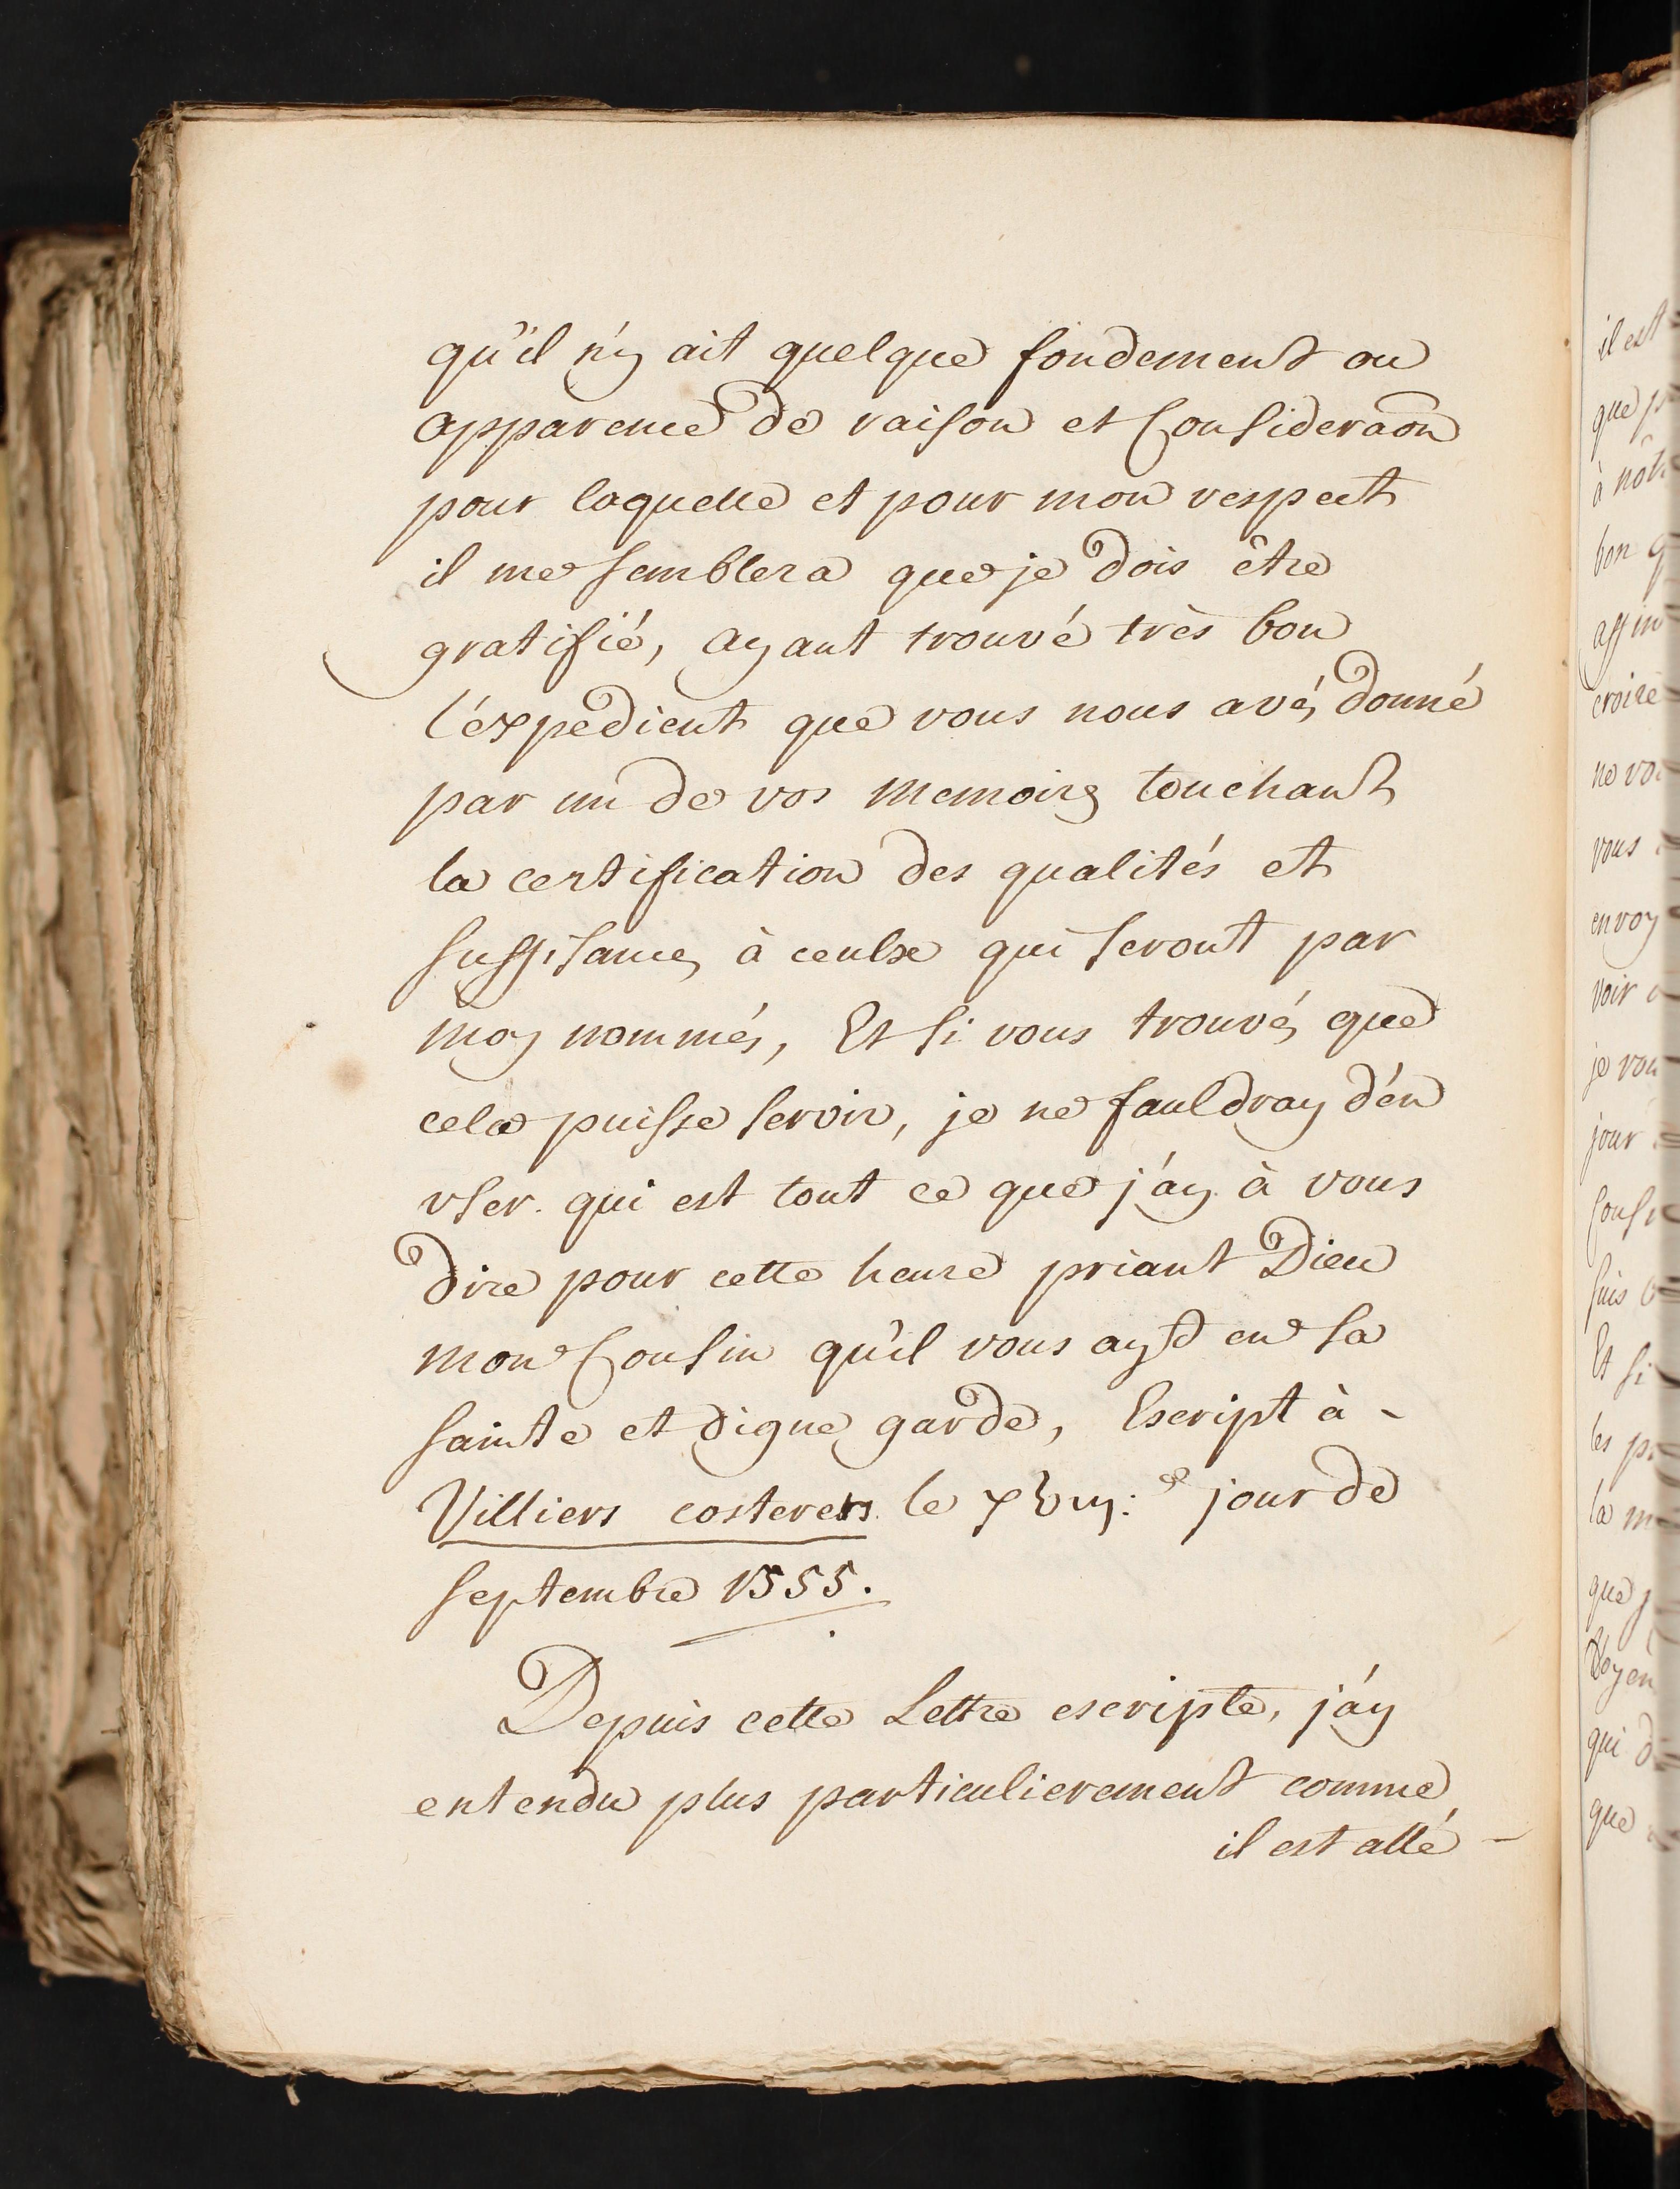 qu'il n'y ait quelque fondement ou
apparence de raison et Consideraõn
pour laquelle et pour mon respect
il me semblera que je dois être
gratifié, ayant trouvé très bon
l'éxpedient que vous nous avés donné
par un de vos memoires touchant
la certification des qualités et
suffisance, à ceulx qui seront par
moy nommés, Et si vous trouvés que
cela puisse servir, je ne fauldray d'én
vser. qui est tout ce que j'áy à vous
dire pour cette heure priant Dieu
mon Cousin qu'il vous ayt en sa
sainte et digne garde, Escript à -
Villiers costerets le xviij.e jour de
septembre 1555.
Depuis cette Lettre escripte, j'áy
entendu plus particulierement comme
il est allé -
il est
que
à
bon
croire
vous
envoy
voir
je vou
jour
Et si
les
la
que
qui
que